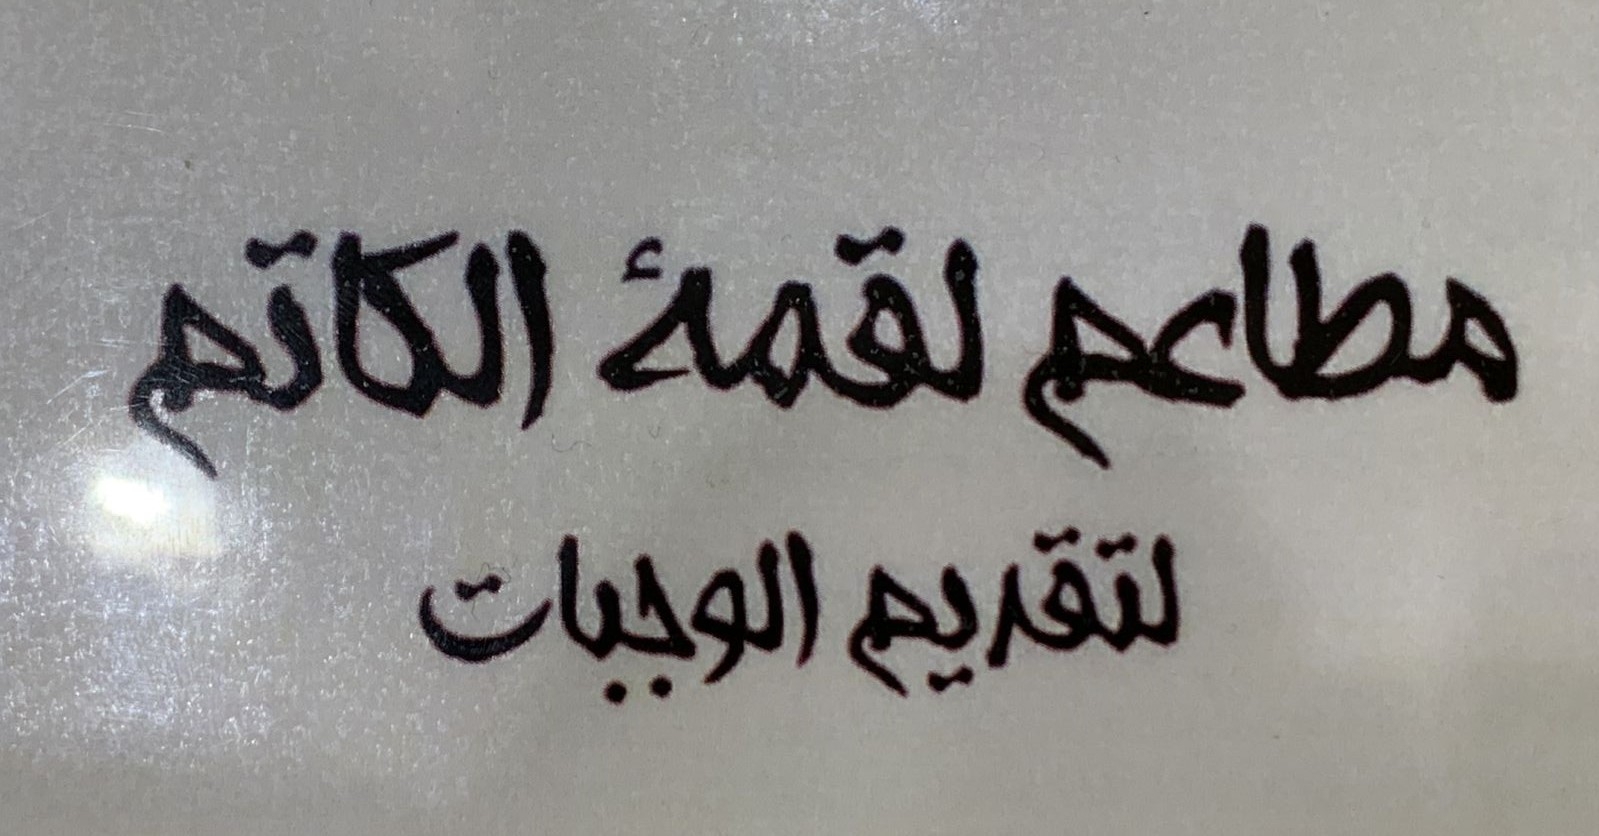 مطاعم لقمة الكاتم
لتقديم الوجبات